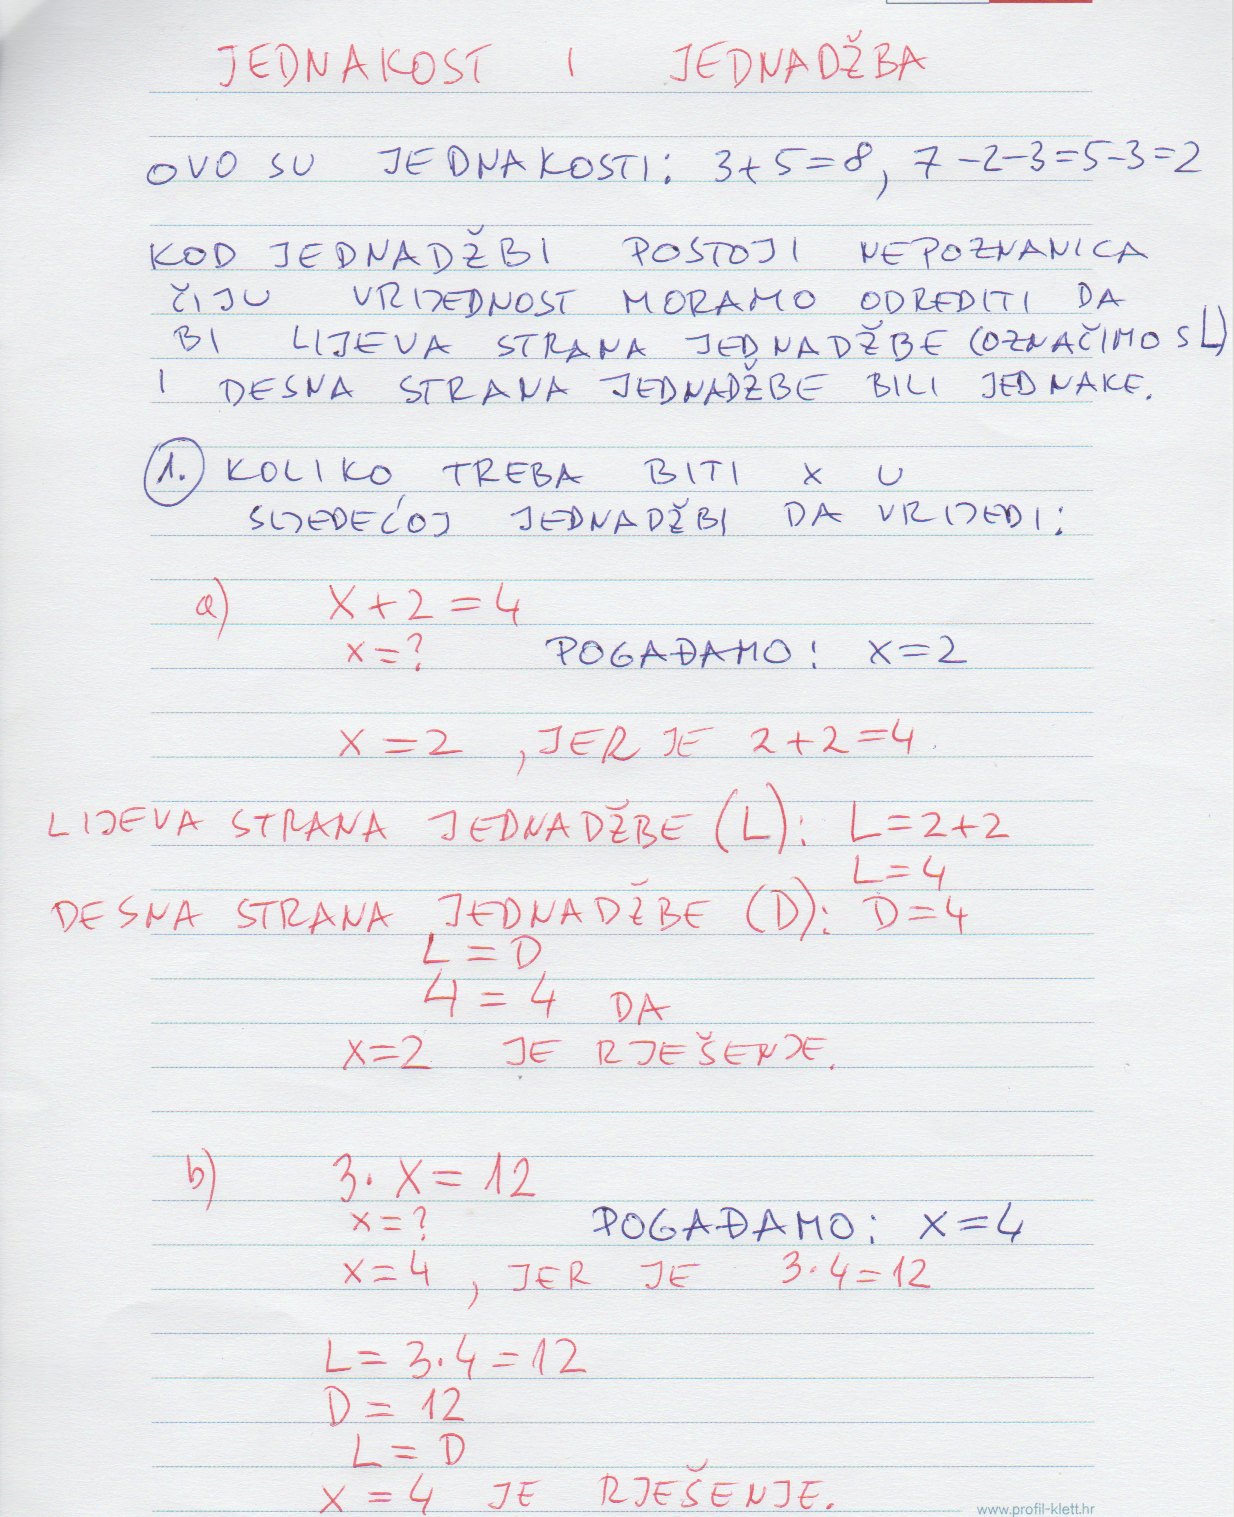 JEDNAKOST I JEDNADŽBA
OVO SU JEDNAKOSTI: 3+5=8, 7-2-3=5-3=2
KOD JEDNADŽBI POSTOJI NEPOZNANICA
ČIJU VRIJEDNOST MORAMO ODREDITI DA
BI LIJEVA STRANA JEDNADŽBE (OZNAČIMO S L)
I DESNA STRANA JEDNADŽBE BILI JEDNAKE.
1. KOLIKO TREBA BITI X U
SLJEDEĆOJ JEDNADŽBI DA VRIJEDI:
a) X+2=4
x=? POGAĐAMO: X=2
X=2, JER JE 2+2=4.
LIJEVA STRANA JEDNADŽBE (L): L=2+2
L=4
DESNA STRANA JEDNADŽBE (D): D=4
L=D
4=4 DA
X=2 JE RJEŠENJE.
b) 3·X=12
x=? POGAĐAMO: X=4
X=4, JER JE 3·4=12
L=3·4=12
D=12
L=D
X=4 JE RJEŠENJE.
www.profil-klett.hr